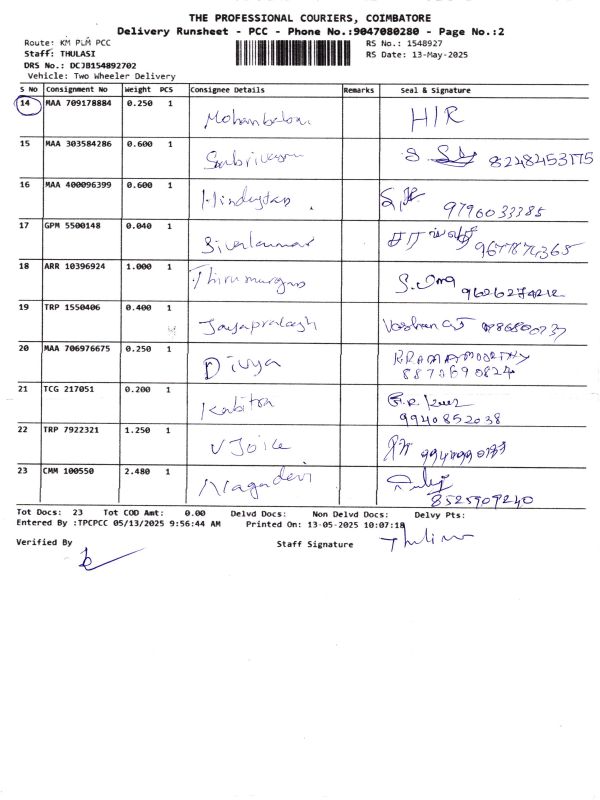 THE PROFESSIONAL COURIERS, COIMBATORE
Delivery Runsheet - PCC - Phone No.:9047080280 - Page No.:2
Route: KM PLM PCC RS No.: 1548927
Staff: THULASI RS Date: 13-May-2025
DRS No.: DCJB154892702
Vehicle: Two Wheeler Delivery
S No Consignment No Weight PCS Consignee Details Remarks Seal & Signature
14 MAA 709178884 0.250 1 Mohanbabu H/R
15 MAA 303584286 0.600 1 8248453175
16 MAA 400096399 0.600 1 Hindustan 9796033385
17 GPM 5500148 0.040 1 Sivakumar
18 ARR 10396924 1.000 1 Thirumurgan S. Uma 9626274212
19 TRP 1550406 0.400 1 Jayaprakash
20 MAA 706976675 0.250 1 Divya R RAMAMOORTHY
8870690824
21 TCG 217051 0.200 1 Kabitra
9940852038
22 TRP 7922321 1.250 1 V Joice
23 CMM 100550 2.480 1 Nagadevi
8525909240
Tot Docs: 23 Tot COD Amt: 0.00 Delvd Docs: Non Delvd Docs: Delvy Pts:
Entered By :TPCPCC 05/13/2025 9:56:44 AM Printed On: 13-05-2025 10:07:18
Verified By Staff Signature